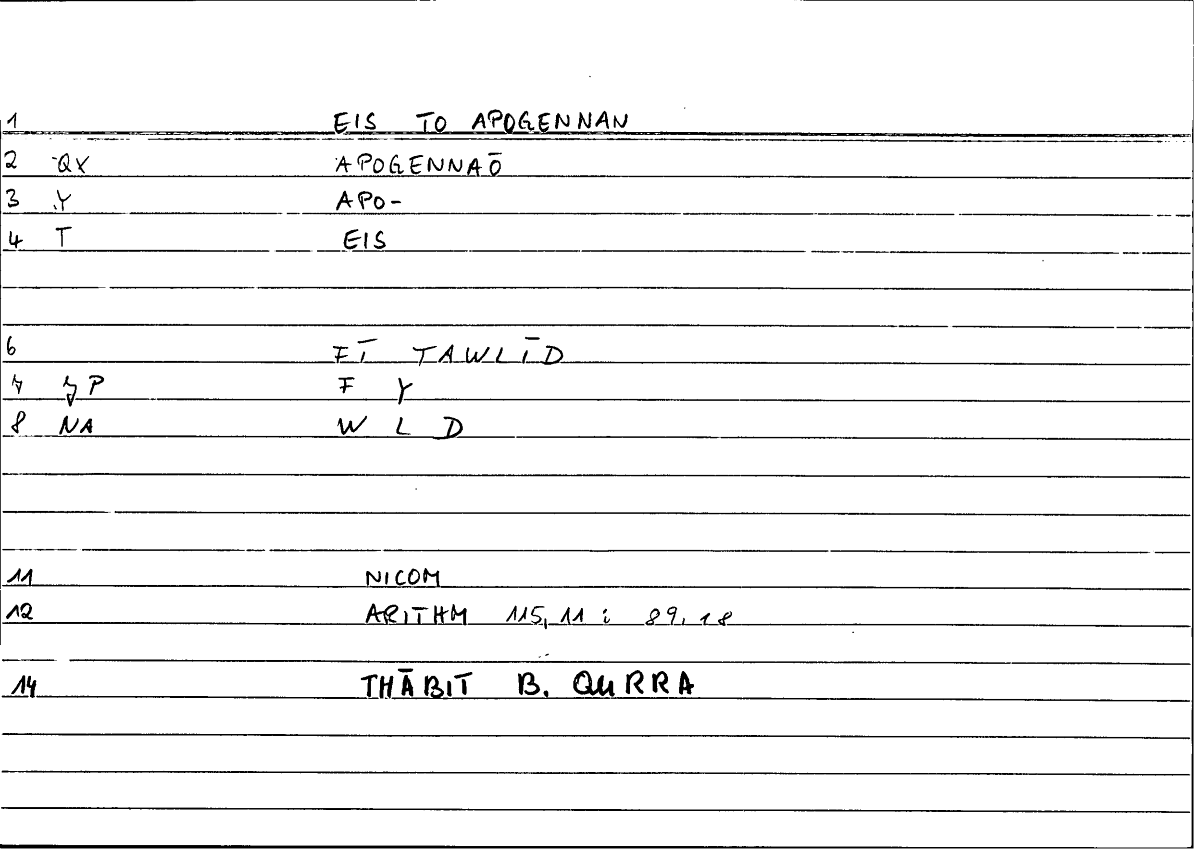 1 EIS TO APOGENNAN
2 QX APOGENNAŌ
3 Y APO-
4 T EIS
6 FĪ TAWLĪD
7 P F Y
8 NA W L D
11 NICOM
12 ARITHM 115,11 : 89.18
14 THĀBIT B. QURRA